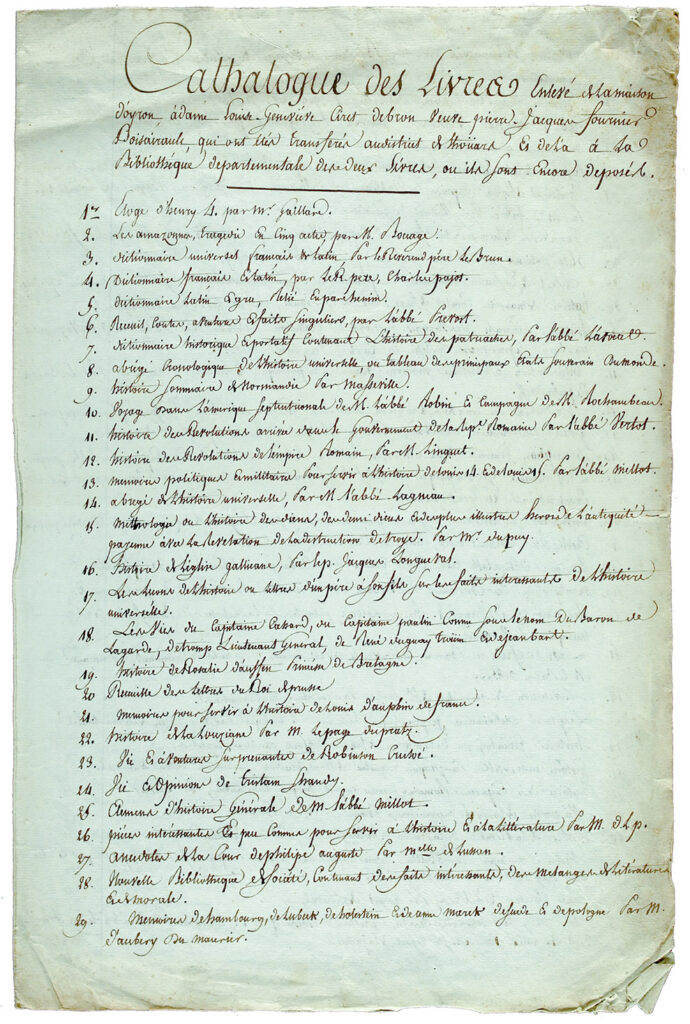 Cathalogue des Livres Enlevé de la maison
d'oyron, a dame Louise Geneviève Ciret de bron veuve pierre Jacques fournier
Boisairault, qui ont étés transférés au district de thouars Et de la à La
Bibliothéque departementale des deux Sévres, ou ils sont Encore deposés.
1er Eloge d'henry 4. par Mr. Gaillard.
2. Les amazonnes, tragedie En Cinq actes, par M. Bocage.
3. Dictionnaire universel français & Latin, Par le Reverend pére Le Brun.
4. Dictionnaire français & Latin, par Le R. pere, Charles pajot.
5. dictionnaire Latin & grec, Relié En parchemin.
6. Recueil, Contes, aventure & faits Singuliers, par L'abbé Prevost.
7. dictionnaire historique & portatif Contenant L'histoire des patriarches, Par l'abbé Ladvocat.
8. abrégé Cronologique de L'histoire universelle, ou tableau des principaux Etats Souverain Du monde.
9. histoire Sommaire de Normandie Par Masseville.
10. Voyage dans L'amerique Septentrionale de M. L'abbé Robin Et Campagne de M. Rochambeau.
11. histoire des Revolutions arrivée dans le Gouvernement de la Repe. Romaine Par l'abbé Vertot.
12. histoire des Revolutions de l'empire Romain, Par M. Linguet.
13. memoires politiques & militaire Pour servir à L'histoire de Louis 14. & de Louis 15. Par l'abbé Millot.
14. abrégé de L'histoire universelle, Par M. l'abbé Lagneau.
15. Mithologie ou L'histoire des dieux, des demi dieux & des plus illustres heros de L'antiquité
payenne avec La Revelation de La destruction de troye. Par Mr. dupuy.
16. Histoire de L'église gallicane, Par le p. Jacques Longueval.
17. Les Lecons de L'histoire ou Lettres d'un pére à son fils Sur les faits interessants de L'histoire
universelle.
18. Les Vies du Capitaine Cassard, du Capitaine paulin Connu Sous le nom Du Baron de
Lagarde, de tromp Lieutenant Général, de René duguay trouin & de jean bart.
19. histoire de Rosalie d'auffen Princesse de Bretagne.
20 Recueille des Lettres du Roi de prusse
21. Memoires pour servir à L'histoire de Louis d'auphin de france.
22. histoire de La Louziane Par M. Le page du pratz.
23. Vie Et aventures Surprenantes de Robinson Crusoé.
24. Vie & Opinions de tristam Shandy.
25. Elemens d'histoire Générale de M. L'abbé Millot.
26. pièces interessantes Et peu Connues pour servir à L'histoire & à la Littérature Par M. d. L. p.
27. anecdotes de La Cour de philipe auguste Par melle de Lussan.
28. Nouvelle Bibliotheque de Société, Contenant des faits interessants, des melanges de Litérature
& de morale.
29. Memoires de hambourg, de Lubeck, de holstein & de dannemarck de suede Et de pologne Par M.
d'aubery Du maurier.